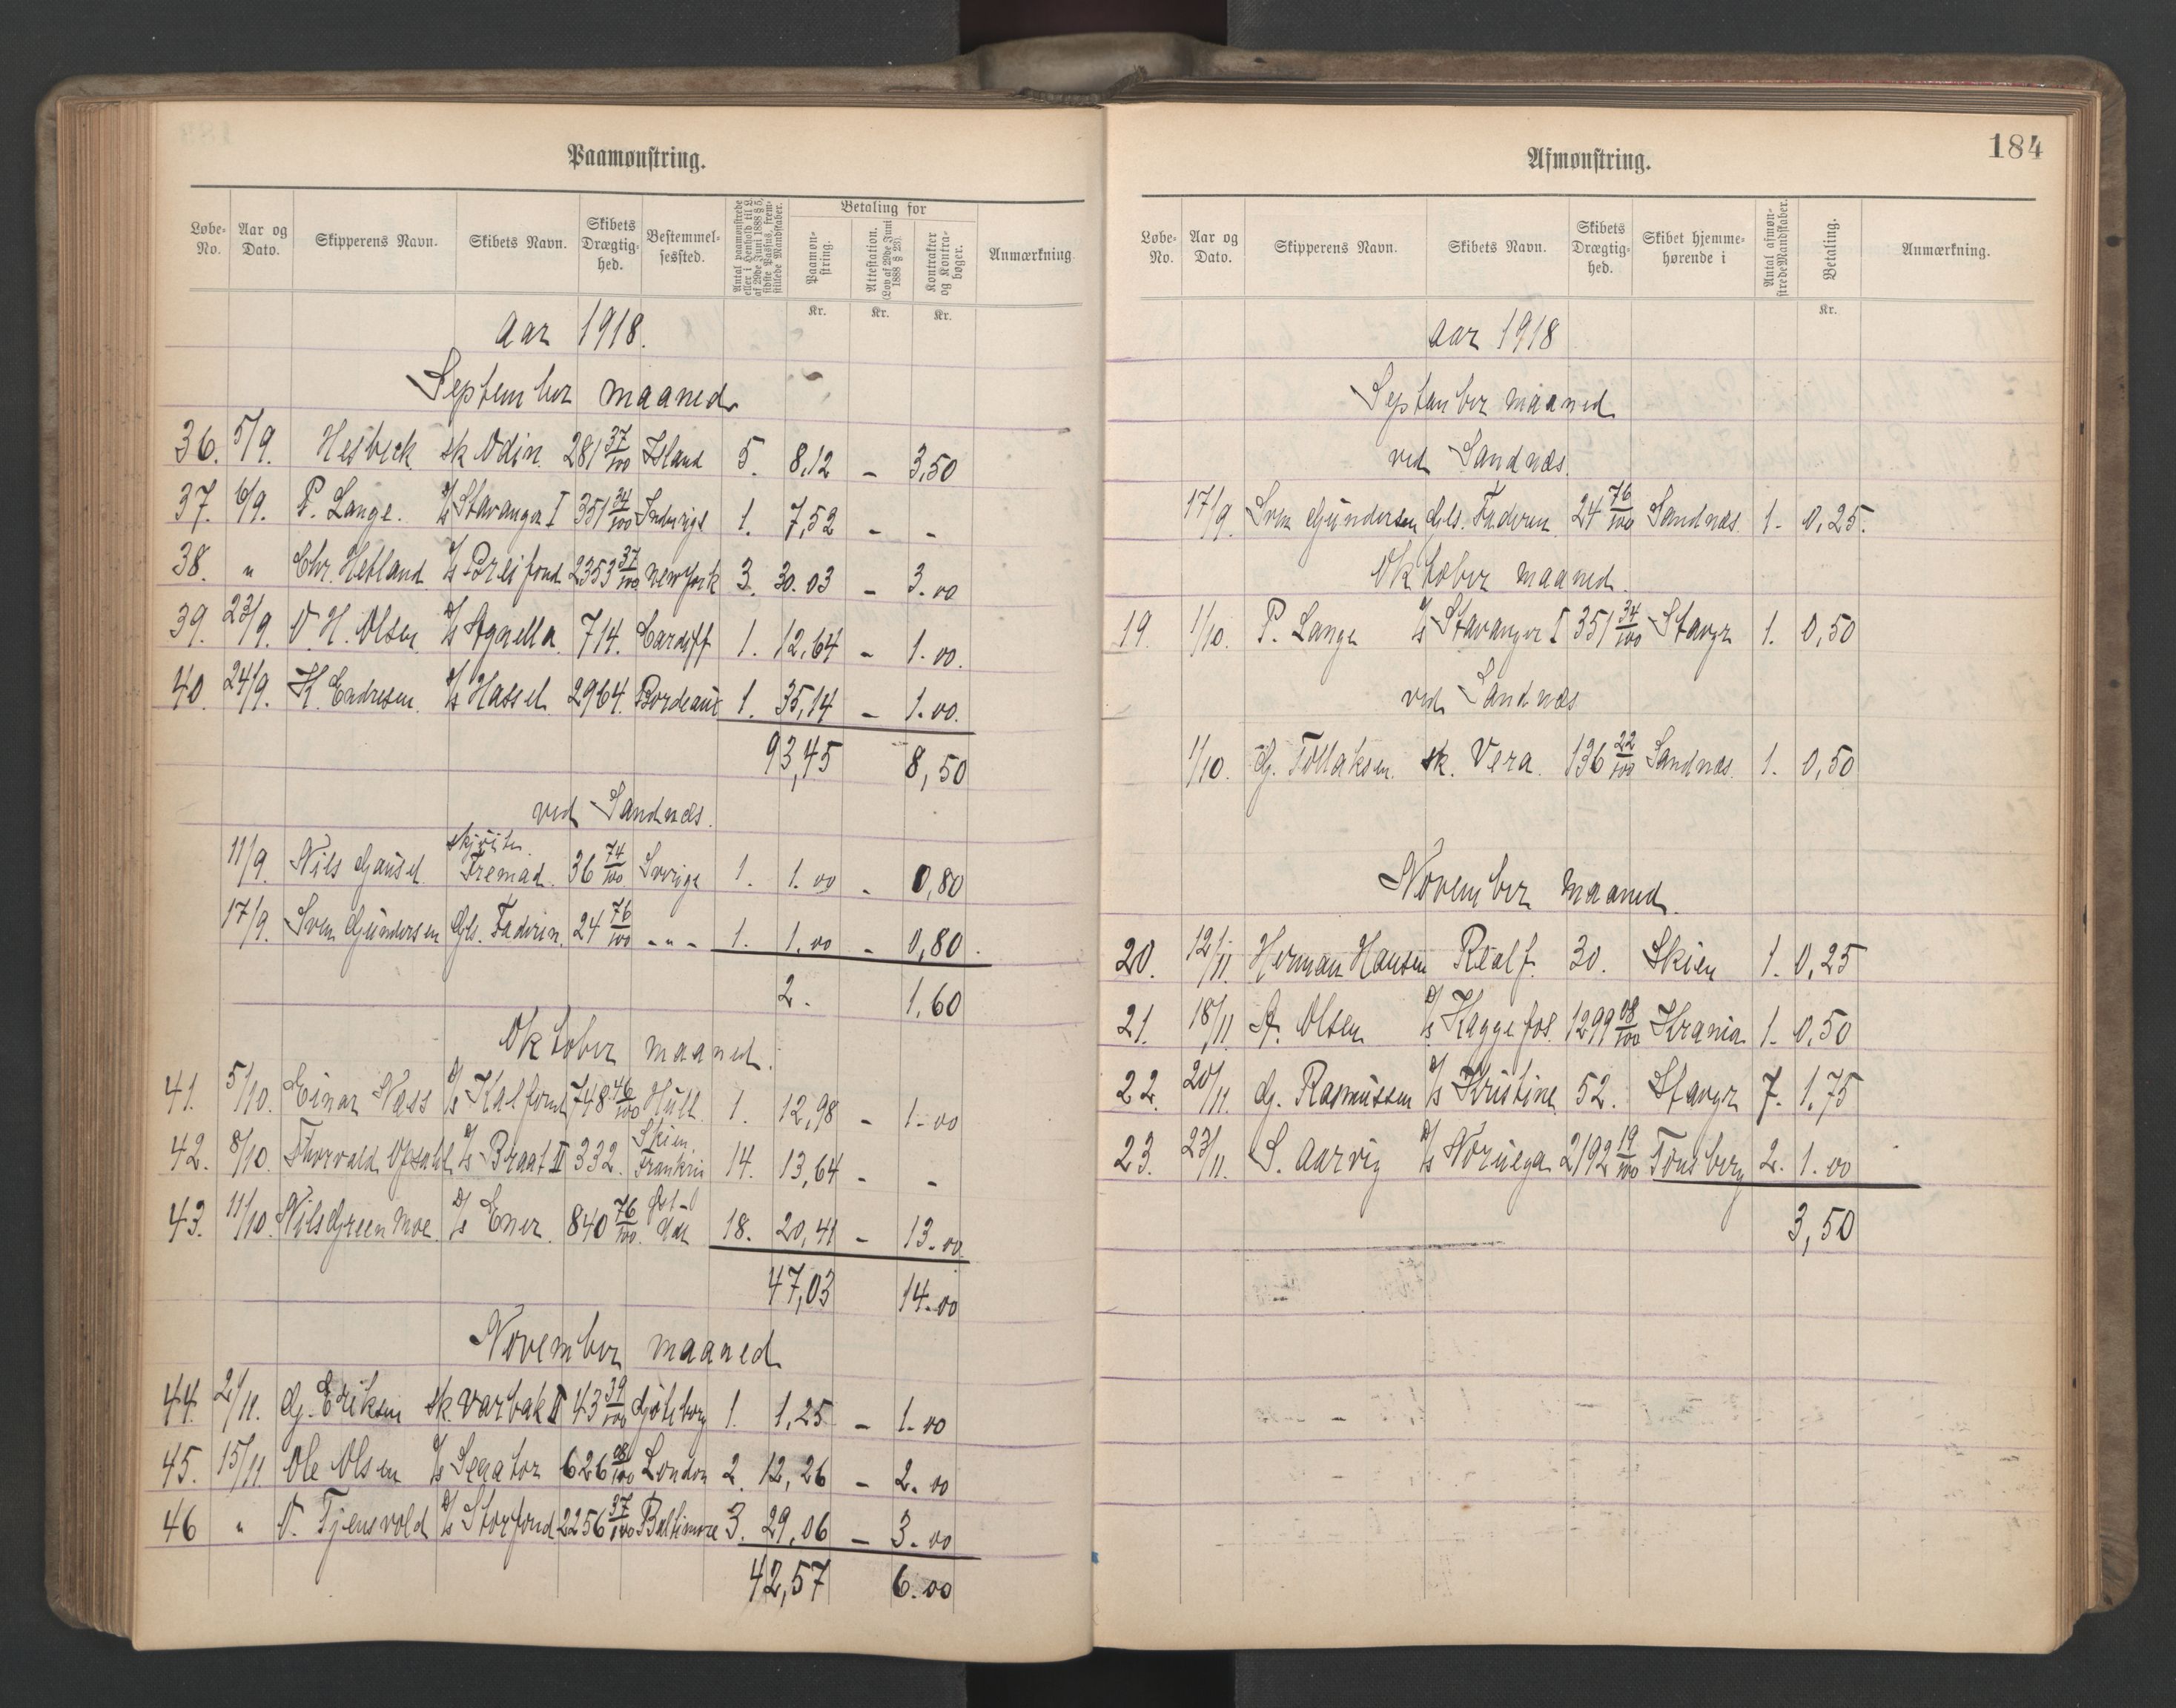 Paamønstring.
Løbe-No. Aar og Dato. Skipperens Navn. Skibets Navn. Skibets Drægtig-hed. Bestemmel-sessted. Antal paamønstrede eller i Henhold til L. af 29de Juni 1888 § 5, sidste Passus, frem-stillede Mandskaber. Betaling for Paamøn-string. Attestation. (Lov af 29de Juni 1888 § 23). Kontrakter og Kontra-bøger. Anmærkning
Kr. Kr. Kr.
Aar 1918.
September maaned
36. 5/9. Hesbeck sk Odin. 281 37/100 Island 5. 8,12 – 3,50
37. 6/9. P. Lange. D/S Stavanger I 351 34/100 Indenrigs 1. 7,52 – –
38. " Chr. Hetland D/S Breifond 2353 37/100 New York 3. 30.03 – 3.00
39. 23/9. O. H. Olsen D/S Agnella 714. Cardiff 1. 12,64 – 1.00.
40. 24/9. K. Endresen. D/S Hassel 2964. Bordeaux 1. 35,14 – 1.00.
93,45 8,50
ved Sandnes.
11/9. Nils Gausel skjøite Fremad. 36 74/100 Sverige 1. 1.00 – 0,80
17/9. Sven Gundersen Gls. Faderen. 24 76/100 – " – 1. 1.00 – 0,80.
2. 1,60
Oktober maaned.
41. 5/10. Einar Nass D/S Kalfond 748 46/100 Hull 1. 12,98 – 1.00
42. 8/10. Thorvald Opsahl D/S Braat II 332. Skien Frankrig 14. 13,64 – –
43. 11/10. Nils Green Moe D/S Ener. 840 76/100 18. 20,41 – 13.00.
47,03 14.00
November maaned
44. 2/11. G. Eriksen sk. Varbak II 43 39/100 Gøteborg 1. 1,25 – 1.00
45. 15/11 Ole Olsen D/S Senator 626 08/100 London 2. 12,26 – 2.00
46 " O. Tjensvold D/S Storfond 2256 37/100 Baltimore 3. 29,06 – 3.00
42,57 6.00
184
Afmønstring.
Løbe-No. Aar og Dato. Skipperens Navn. Skibets Navn. Skibets Drægtig-hed. Skibet hjemme-hørende i Antal afmøn-strede Mandskaber. Betaling. Anmærkning.
Kr.
Aar 1918
September maaned
ved Sandnes.
17/9. Sven Gundersen Gls. Faderen 24 76/100 Sandnes. 1. 0,25.
Oktober maaned.
19. 1/10. P. Lange D/S Stavanger I 351 34/100 Stavgr 1. 0,50
ved Sandnes
1/10. G. Tollaksen. sk. Vera. 136 22/100 Sandnes. 1. 0,50
November maaned.
20. 12/11. Herman Hansen Realf. 30. Skien 1. 0,25
21. 18/11 A. Olsen D/S Kaggefos. 1299 08/100 Krania 1. 0,50
22. 20/11. G. Rasmussen D/S Kristine 52. Stavgr 7. 1,75
23. 23/11. S. Aarvig D/S Noruega 2192 19/100 Tønsberg 2. 1.00
3,50